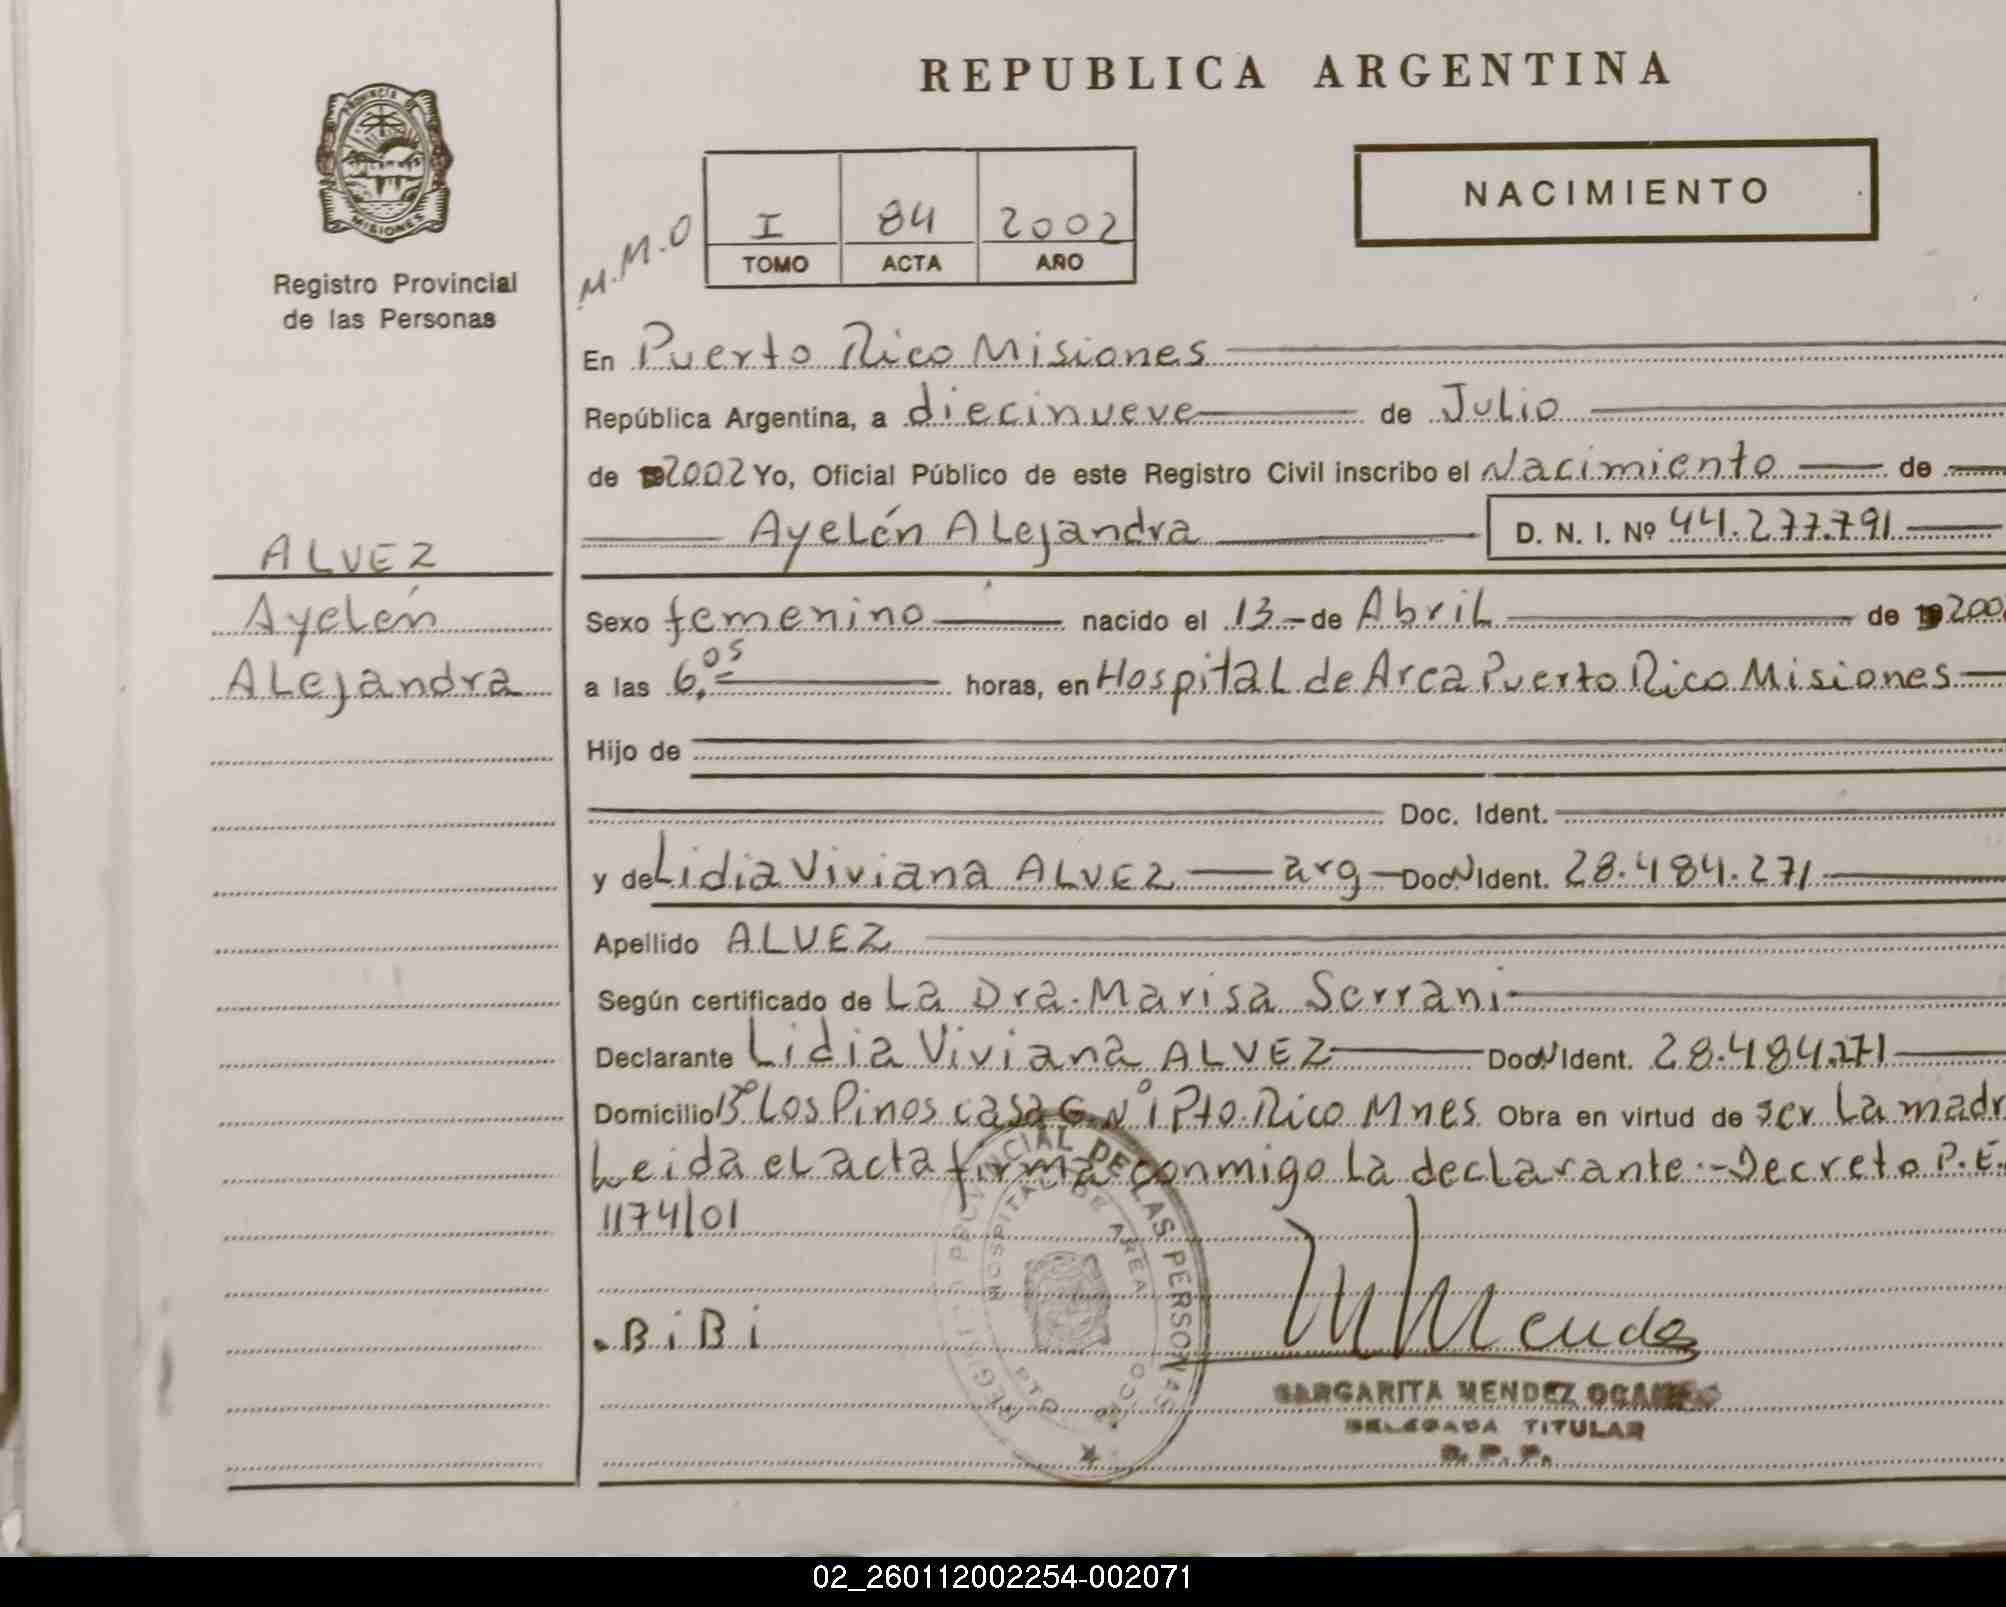 REPUBLICA ARGENTINA
PROVINCIA DE MISIONES
Registro Provincial
de las Personas
NACIMIENTO
M.M.O
I 84 2002
TOMO ACTA AÑO
En Puerto Rico Misiones
República Argentina, a diecinueve de Julio
de 2002 Yo, Oficial Público de este Registro Civil inscribo el Nacimiento de
Ayelén Alejandra D. N. I. Nº 44.277.791
ALVEZ
Ayelén
Alejandra
Sexo femenino nacido el 13 de Abril de 200
a las 6,05 horas, en Hospital de Area Puerto Rico Misiones
Hijo de
Doc. Ident.
y de Lidia Viviana ALVEZ arg Doc N Ident. 28.484.271
Apellido ALVEZ
Según certificado de La Dra. Marisa Serrani
Declarante Lidia Viviana ALVEZ Doc N Ident. 28.484.271
Domicilio Bº Los Pinos casa G Nº 1 Pto. Rico Mnes Obra en virtud de ser la madr
Leida el acta firma conmigo la declarante.- Decreto P.E.
1174/01
REGISTRO PROVINCIAL DE LAS PERSONAS
HOSPITAL DE AREA
PTO. RICO
.BiBi
MMendez
MARGARITA MENDEZ OCAMPO
DELEGADA TITULAR
R. P. P.
02_260112002254-002071